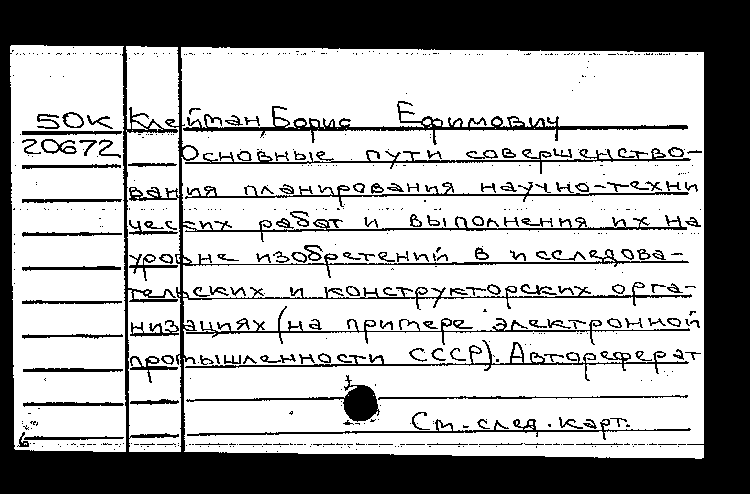 50К Клейман, Борис Ефимович
20672 Основные пути совершенство-
вания планирования научно-техни
ческих работ и выполнения их на
уровне изобретений в исследова-
тельских и конструкторских орга-
низациях (на примере электронной
промышленности СССР). Автореферат
См. след. карт.